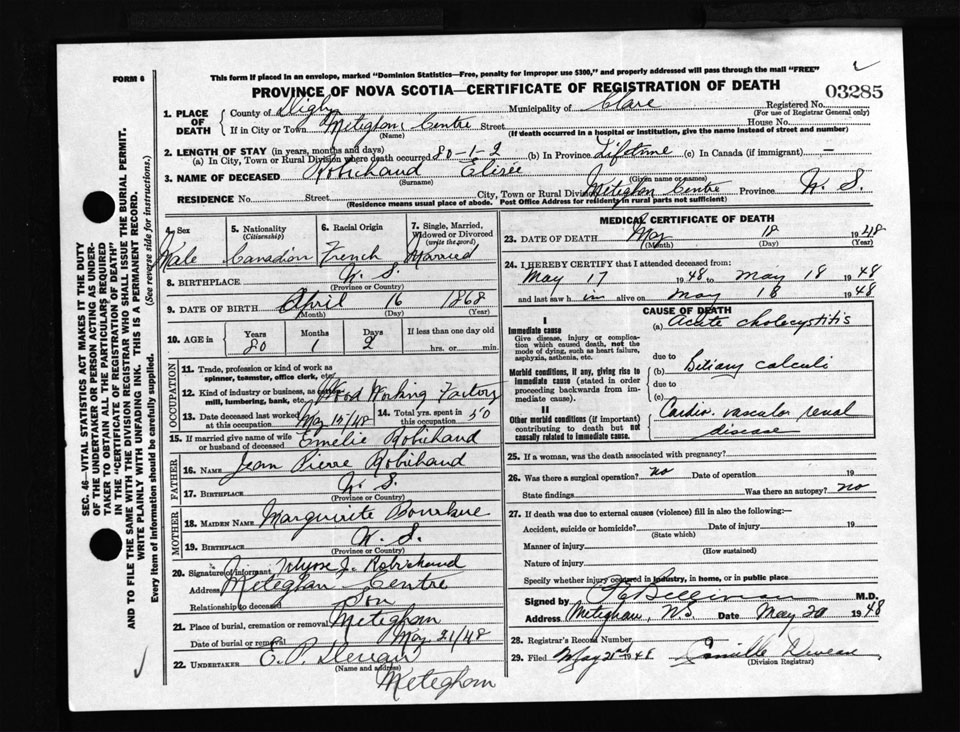 FORM 6
This form if placed in an envelope, marked "Dominion Statistics—Free, penalty for improper use $300," and properly addressed will pass through the mail "FREE"
PROVINCE OF NOVA SCOTIA—CERTIFICATE OF REGISTRATION OF DEATH
03285
1. PLACE OF DEATH
County of Digby Municipality of Clare Registered No.
(For use of Registrar General only)
If in City or Town Meteghan Centre Street House No.
(Name) (If death occurred in a hospital or institution, give the name instead of street and number)
2. LENGTH OF STAY (in years, months and days)
(a) In City, Town or Rural Division where death occurred 80-1-2 (b) In Province Lifetime (c) In Canada (if immigrant) —
3. NAME OF DECEASED Robichaud Elisée
(Surname) (Given name or names)
RESIDENCE No. Street City, Town or Rural Division Meteghan Centre Province N. S.
(Residence means usual place of abode. Post Office Address for residents in rural parts not sufficient)
4. Sex 5. Nationality (Citizenship) 6. Racial Origin 7. Single, Married, Widowed or Divorced (write the word)
Male Canadian French Married
8. BIRTHPLACE N. S.
(Province or Country)
9. DATE OF BIRTH April 16 1868
(Month) (Day) (Year)
10. AGE in Years Months Days If less than one day old
80 1 2 hrs. or min.
OCCUPATION
11. Trade, profession or kind of work as spinner, teamster, office clerk, etc.
12. Kind of industry or business, as mill, lumbering, bank, etc. Wood Working Factory
13. Date deceased last worked at this occupation May 15/48 14. Total yrs. spent in this occupation 50
15. If married give name of wife or husband of deceased Emelie Robichaud
FATHER
16. NAME Jean Pierre Robichaud
17. BIRTHPLACE N. S.
(Province or Country)
MOTHER
18. MAIDEN NAME Marguirite
19. BIRTHPLACE N. S.
(Province or Country)
20. Signature of informant J. Robichaud
Address Meteghan Centre
Relationship to deceased Son
21. Place of burial, cremation or removal Meteghan
Date of burial or removal May 21/48
22. UNDERTAKER E. P.
(Name and address)
Meteghan
MEDICAL CERTIFICATE OF DEATH
23. DATE OF DEATH May 18 1948
(Month) (Day) (Year)
24. I HEREBY CERTIFY that I attended deceased from:
May 17 1948 to May 18 1948
and last saw him alive on May 18 1948
CAUSE OF DEATH
I
Immediate cause
Give disease, injury or complication which caused death, not the mode of dying, such as heart failure, asphyxia, asthenia, etc.
(a) Acute cholecystitis
due to
Morbid conditions, if any, giving rise to immediate cause (stated in order proceeding backwards from immediate cause).
(b) Biliary calculi
due to
(c)
II
Other morbid conditions (if important) contributing to death but not causally related to immediate cause.
Cardio. vascular renal
disease
25. If a woman, was the death associated with pregnancy?
26. Was there a surgical operation? no Date of operation 19
State findings Was there an autopsy? no
27. If death was due to external causes (violence) fill in also the following:—
Accident, suicide or homicide? Date of injury 19
(State which)
Manner of injury
(How sustained)
Nature of injury
Specify whether injury occured in industry, in home, or in public place
Signed by M.D.
Address Meteghan, N.S. Date May 20 1948
28. Registrar's Record Number
29. Filed May 21st 1948 Camille
(Division Registrar)
SEC. 46—VITAL STATISTICS ACT MAKES IT THE DUTY
OF THE UNDERTAKER OR PERSON ACTING AS UNDER-
TAKER TO OBTAIN ALL THE PARTICULARS REQUIRED
IN THE "CERTIFICATE OF REGISTRATION OF DEATH"
AND TO FILE THE SAME WITH THE DIVISION REGISTRAR WHO SHALL ISSUE THE BURIAL PERMIT.
WRITE PLAINLY WITH UNFADING INK. THIS IS A PERMANENT RECORD.
Every item of information should be carefully supplied. (See reverse side for instructions.)